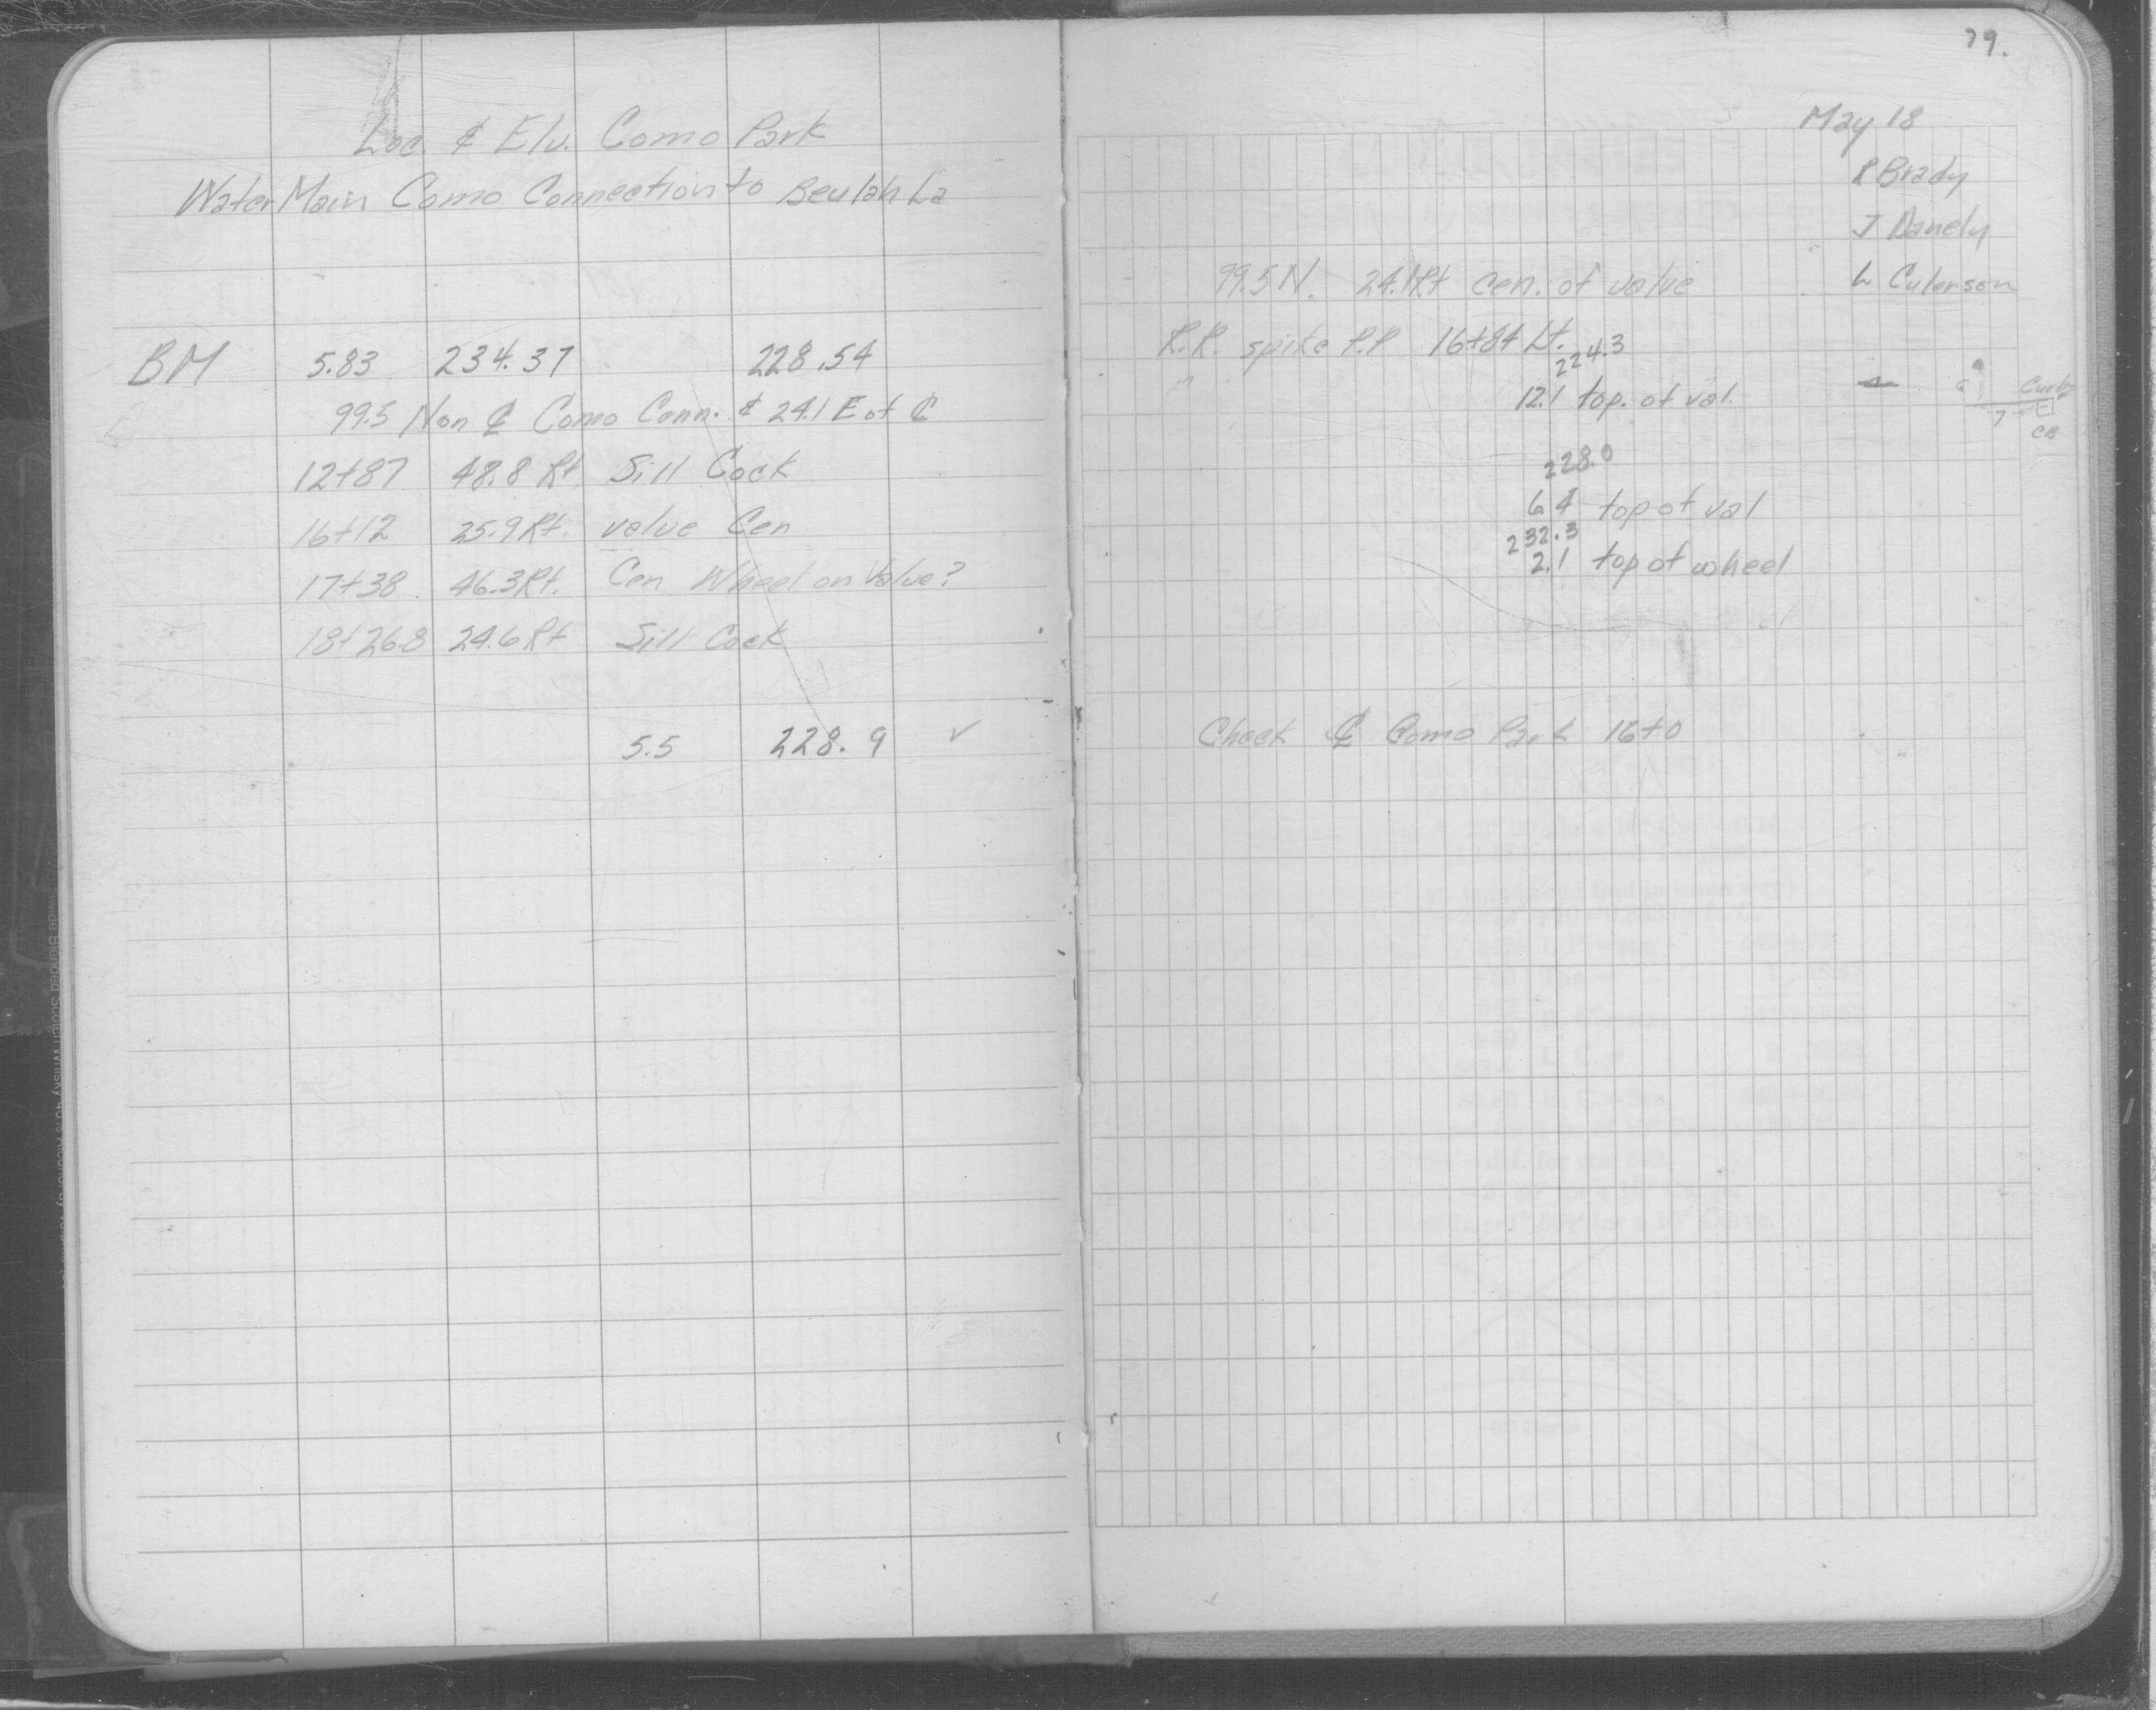 Loc. & Elv. Como Park
Water Main Como Connection to Beulah La
BM 5.83 234.37 228.54
99.5 N on ℄ Como Conn. & 24.1 E of ℄
12+87 48.8 Rt. Sill Cock
16+12 25.9 Rt. valve Cen
17+38 46.3 Rt. Cen Wheel on Valve?
18+26.8 24.6 Rt Sill Cock
5.5 228.9 ✓
79.
May 18
R Brady
J Danely
L Culerson
99.5 N. 24.1 Rt cen. of valve
R.R. spike P.P 16+84 Lt.
224.3
12.1 top. of val.
Curb
7
CB
228.0
6.4 top of val
232.3
2.1 top of wheel
Check ℄ Como Park 16+0